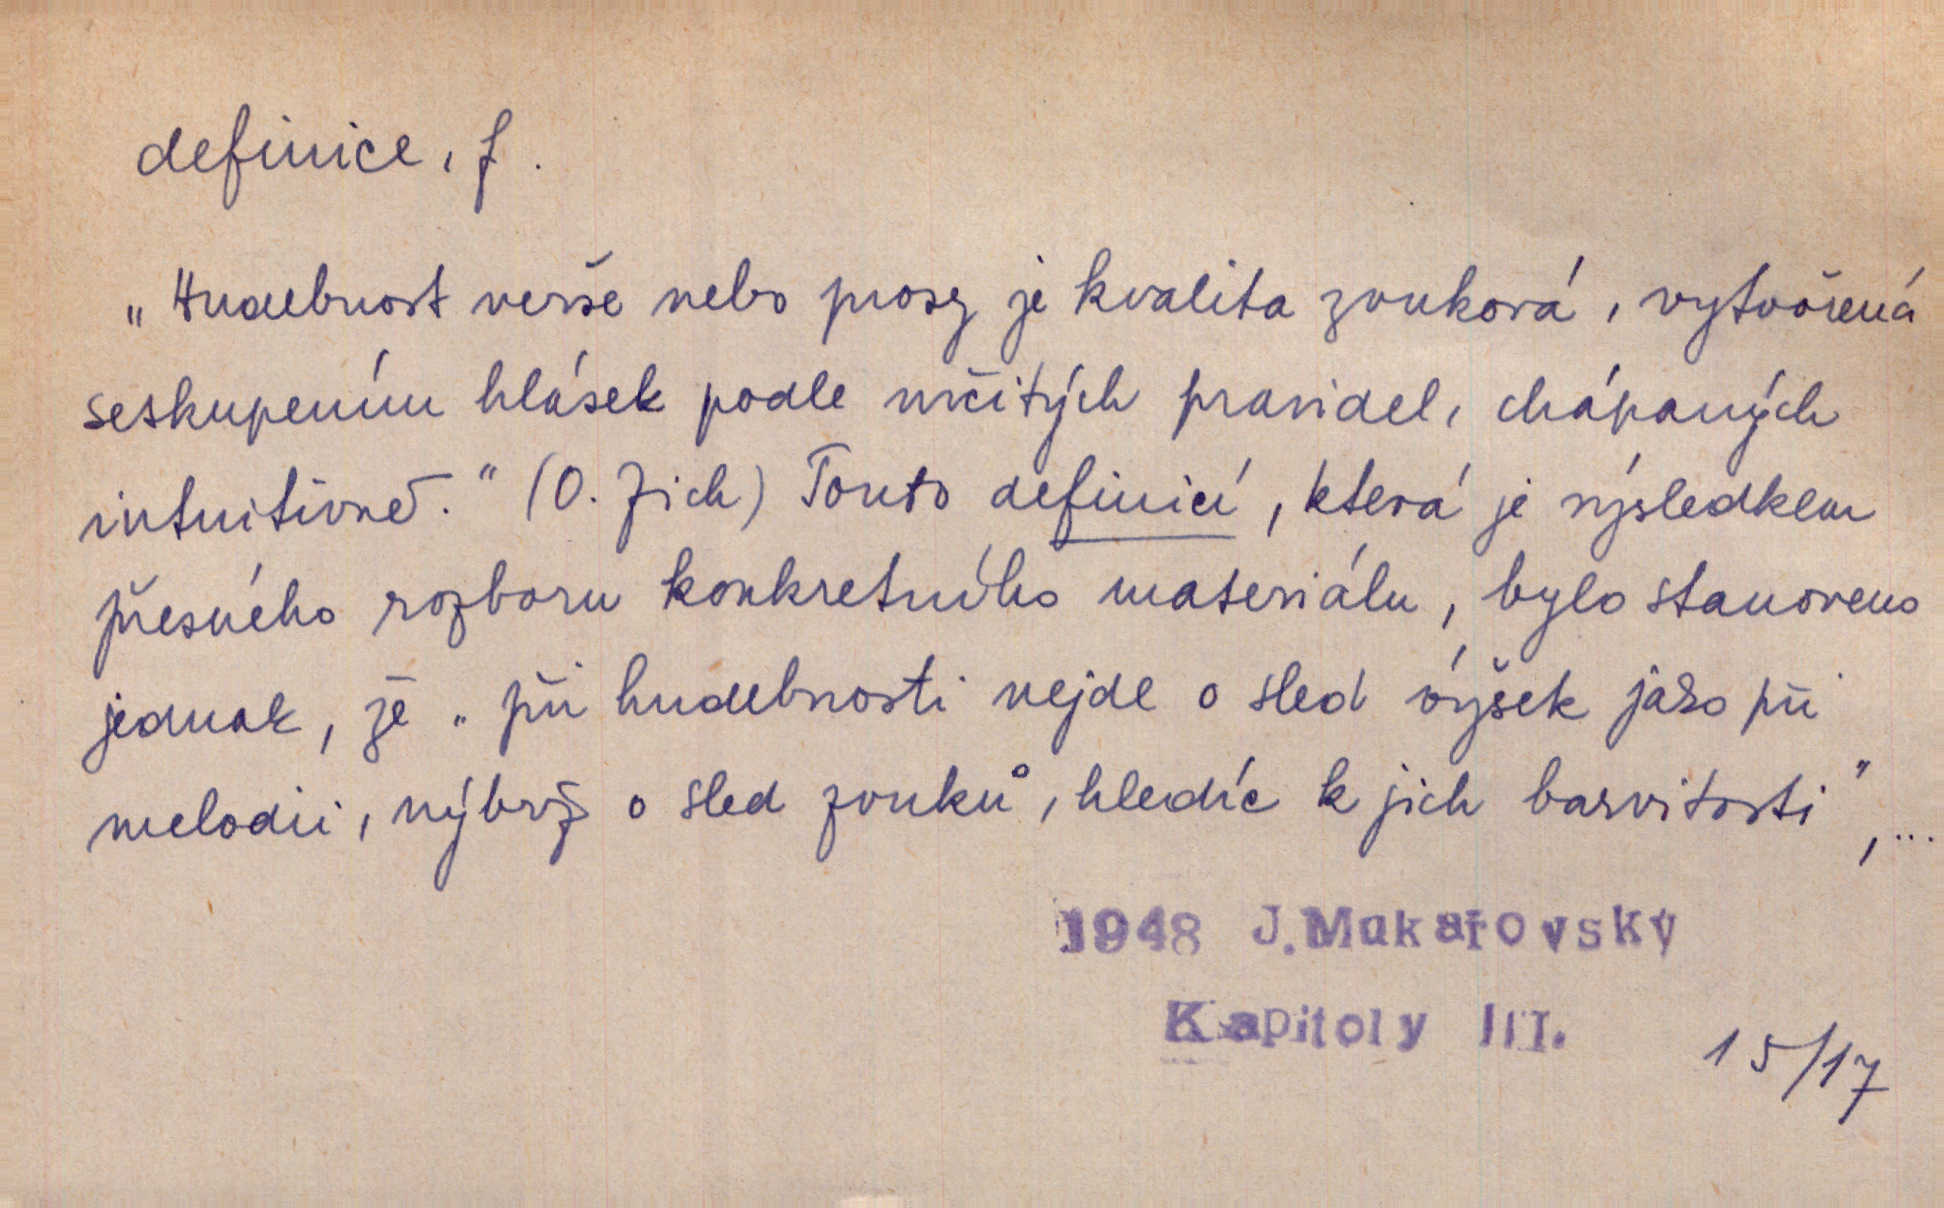 definice, f.
„Hudebnost verše nebo prosy je kvalita zvuková, vytvořená
seskupením hlásek podle určitých pravidel, chápaných
intuitivně." (O. Zich) Touto definicí, která je výsledkem
přesného rozboru konkretního materiálu, bylo stanoveno
jednak, že „při hudebnosti nejde o sled výšek jako při
melodii, nýbrž o sled zvuků, hledíc k jich barvitosti", ...
1948 J. Mukařovský
Kapitoly III.
15/17